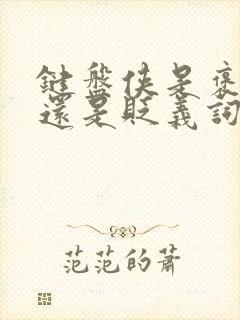 鍵盤俠是褒
還是貶義詞
范范的蕭